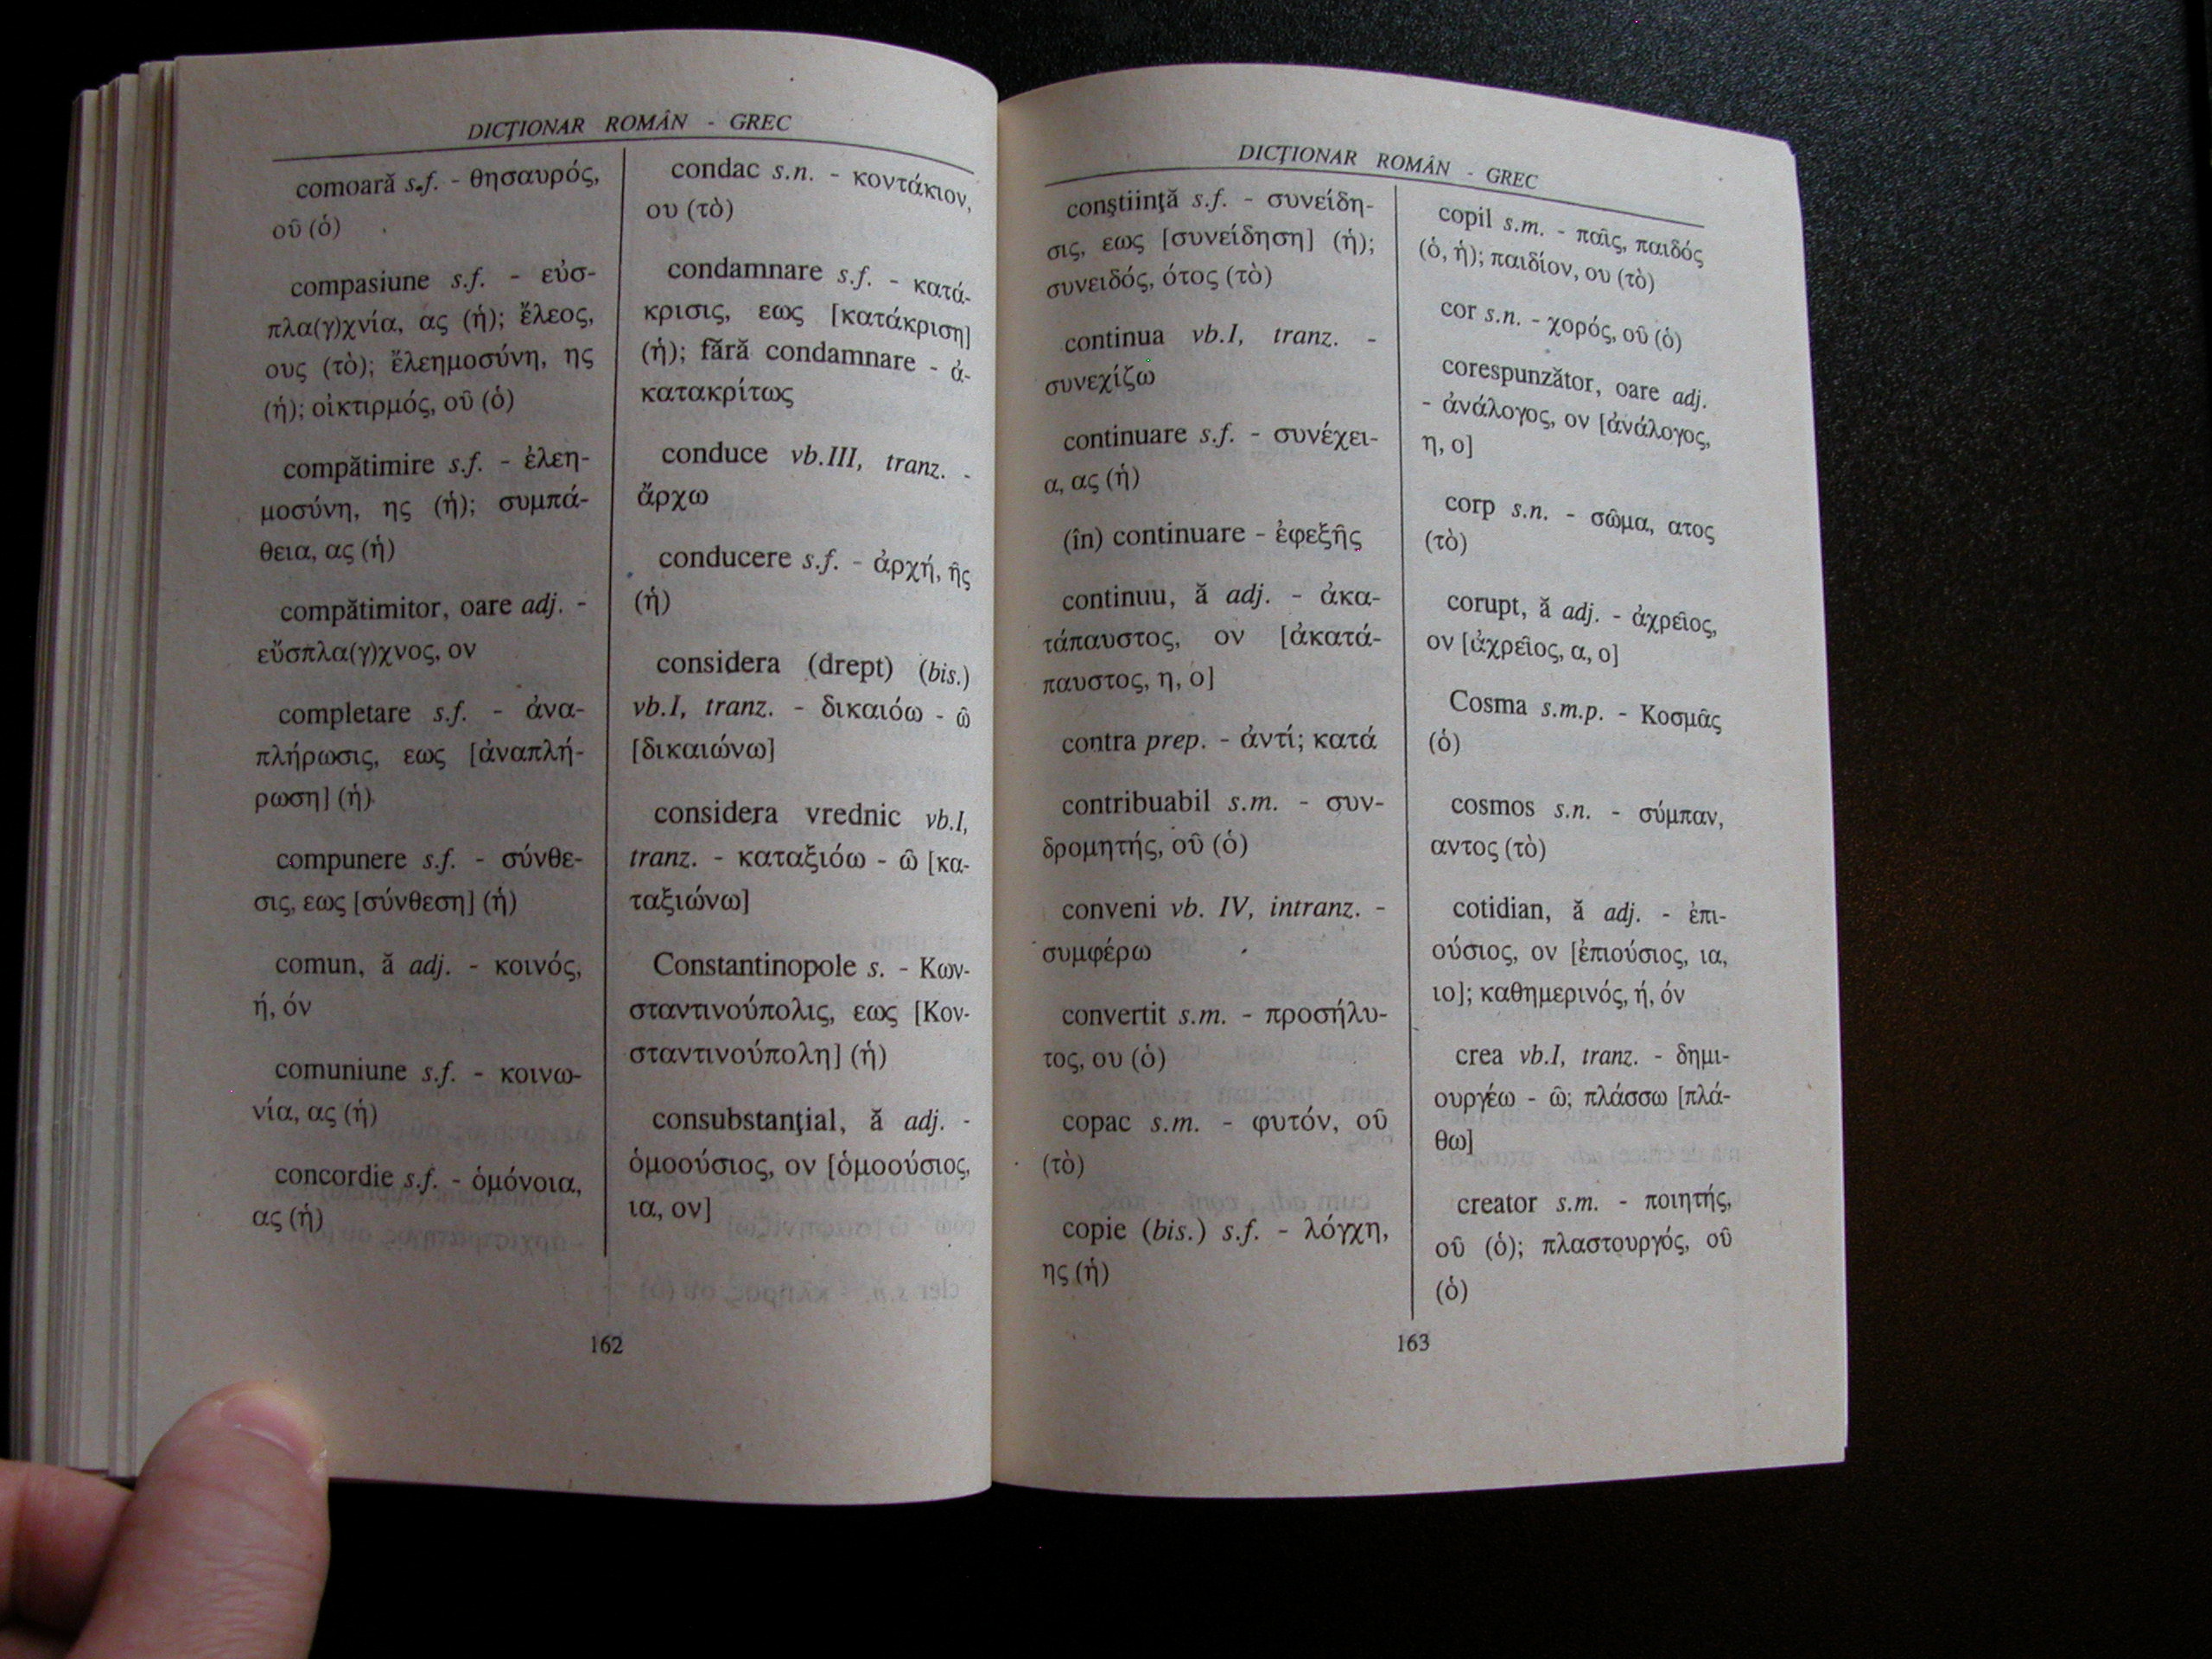 DICŢIONAR ROMÂN - GREC
comoară s.f. - θησαυρός,
οῦ (ὁ)
compasiune s.f. - εὐσ-
πλα(γ)χνία, ας (ἡ); ἔλεος,
ους (τὸ); ἔλεημοσύνη, ης
(ἡ); οἰκτιρμός, οῦ (ὁ)
compătimire s.f. - ἐλεη-
μοσύνη, ης (ἡ); συμπά-
θεια, ας (ἡ)
compătimitor, oare adj. -
εὔσπλα(γ)χνος, ον
completare s.f. - ἀνα-
πλήρωσις, εως [ἀναπλή-
ρωση] (ἡ)
compunere s.f. - σύνθε-
σις, εως [σύνθεση] (ἡ)
comun, ă adj. - κοινός,
ή, όν
comuniune s.f. - κοινω-
νία, ας (ἡ)
concordie s.f. - ὁμόνοια,
ας (ἡ)
condac s.n. - κοντάκιον,
ου (τὸ)
condamnare s.f. - κατά-
κρισις, εως [κατάκριση]
(ἡ); fără condamnare - ἀ-
κατακρίτως
conduce vb.III, tranz. -
ἄρχω
conducere s.f. - ἀρχή, ῆς
(ἡ)
considera (drept) (bis.)
vb.I, tranz. - δικαιόω - ῶ
[δικαιώνω]
considera vrednic vb.I,
tranz. - καταξιόω - ῶ [κα-
ταξιώνω]
Constantinopole s. - Κων-
σταντινούπολις, εως [Κον-
σταντινούπολη] (ἡ)
consubstanţial, ă adj. -
ὁμοούσιος, ον [ὁμοούσιος,
ια, ον]
162
DICŢIONAR ROMÂN - GREC
conştiinţă s.f. - συνείδη-
σις, εως [συνείδηση] (ἡ);
συνειδός, ότος (τὸ)
continua vb.I, tranz. -
συνεχίζω
continuare s.f. - συνέχει-
α, ας (ἡ)
(în) continuare - ἐφεξῆς
continuu, ă adj. - ἀκα-
τάπαυστος, ον [ἀκατά-
παυστος, η, ο]
contra prep. - ἀντί; κατά
contribuabil s.m. - συν-
δρομητής, οῦ (ὁ)
conveni vb. IV, intranz. -
συμφέρω
convertit s.m. - προσήλυ-
τος, ου (ὁ)
copac s.m. - φυτόν, οῦ
(τὸ)
copie (bis.) s.f. - λόγχη,
ης (ἡ)
copil s.m. - παῖς, παιδός
(ὁ, ἡ); παιδίον, ου (τὸ)
cor s.n. - χορός, οῦ (ὁ)
corespunzător, oare adj.
- ἀνάλογος, ον [ἀνάλογος,
η, ο]
corp s.n. - σῶμα, ατος
(τὸ)
corupt, ă adj. - ἀχρεῖος,
ον [ἀχρεῖος, α, ο]
Cosma s.m.p. - Κοσμᾶς
(ὁ)
cosmos s.n. - σύμπαν,
αντος (τὸ)
cotidian, ă adj. - ἐπι-
ούσιος, ον [ἐπιούσιος, ια,
ιο]; καθημερινός, ή, όν
crea vb.I, tranz. - δημι-
ουργέω - ῶ; πλάσσω [πλά-
θω]
creator s.m. - ποιητής,
οῦ (ὁ); πλαστουργός, οῦ
(ὁ)
163